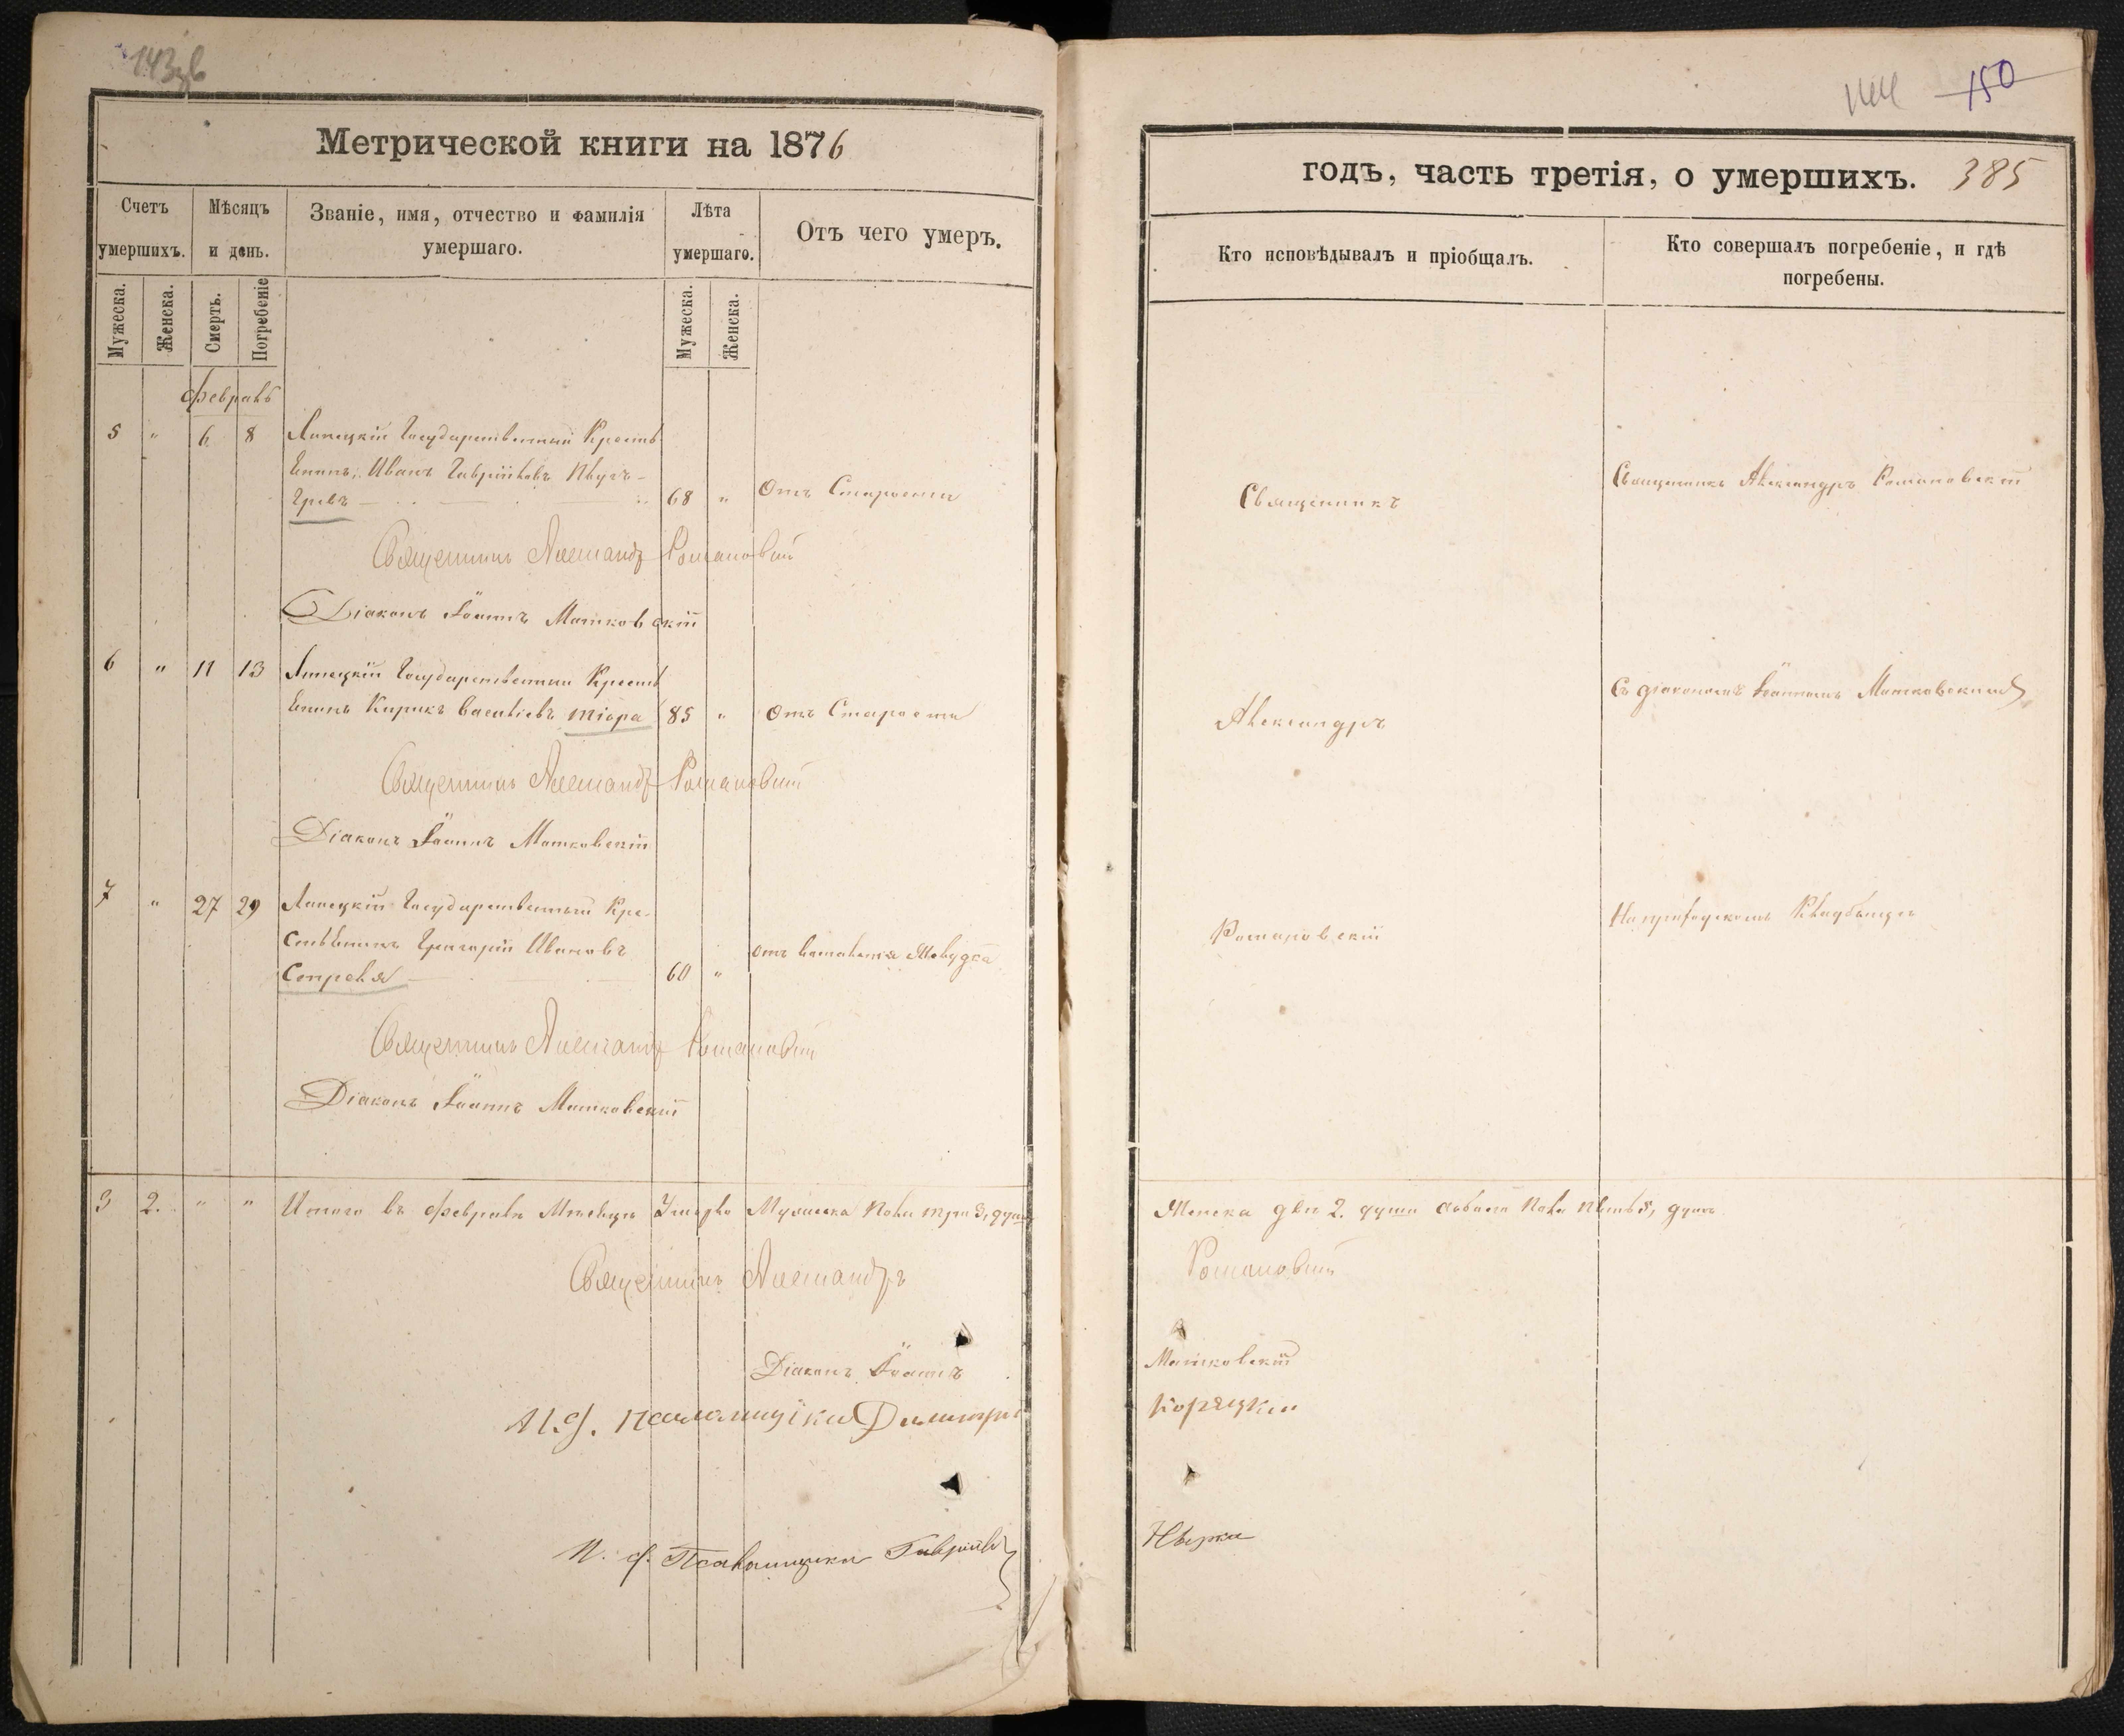 143
Метрической книги на 1876
Счетъ
умершихъ.
Мѣсяцъ
и день.
Званіе, имя, отчество и фамилія
умершаго.
Лѣта
умершаго.
Отъ чего умеръ.
Мужеска.
Женска.
Смерть.
Погребеніе
Мужеска.
Женска.
февраль
5 " 6 8 Липецкій Государственный Кресть
янинъ, Иванъ Гавріиловъ
68 " Отъ Старости
Священникъ Александръ Романовскій
Діаконъ Іоаннъ Матковскій
6 " 11 13 Липецкій Государственный Кресть
янинъ Кирикъ Васильевъ 85 " Отъ Старости
Священникъ Александръ Романовскій
Діаконъ Іоаннъ Матковскій
7 " 27 29 Липецкій Государственный Кре-
стьянинъ Григорій Ивановъ
60 "
отъ воспаленія Желудка
Священникъ Александръ Романовскій
Діаконъ Іоаннъ Матковскій
3 2. " " Итого въ февралѣ Мѣсяцѣ Умерло Мужеска Пола три 3, души
Священникъ Александръ
Діаконъ Іоаннъ
И. д. Димитрі
И. д. Псаломщика Гавріилъ
150
годъ, часть третія, о умершихъ. 385
Кто исповѣдывалъ и пріобщалъ.
Кто совершалъ погребеніе, и гдѣ
погребены.
Священникъ
Священникъ Александръ Романовскій
Александръ
Съ діакономъ Іоанномъ Матковскимъ
Романовскій
На приходскомъ Кладбищѣ
Женска двѣ 2. души обоего Пола пять 5, душъ
Романовскій
Матковскій
Корецкій